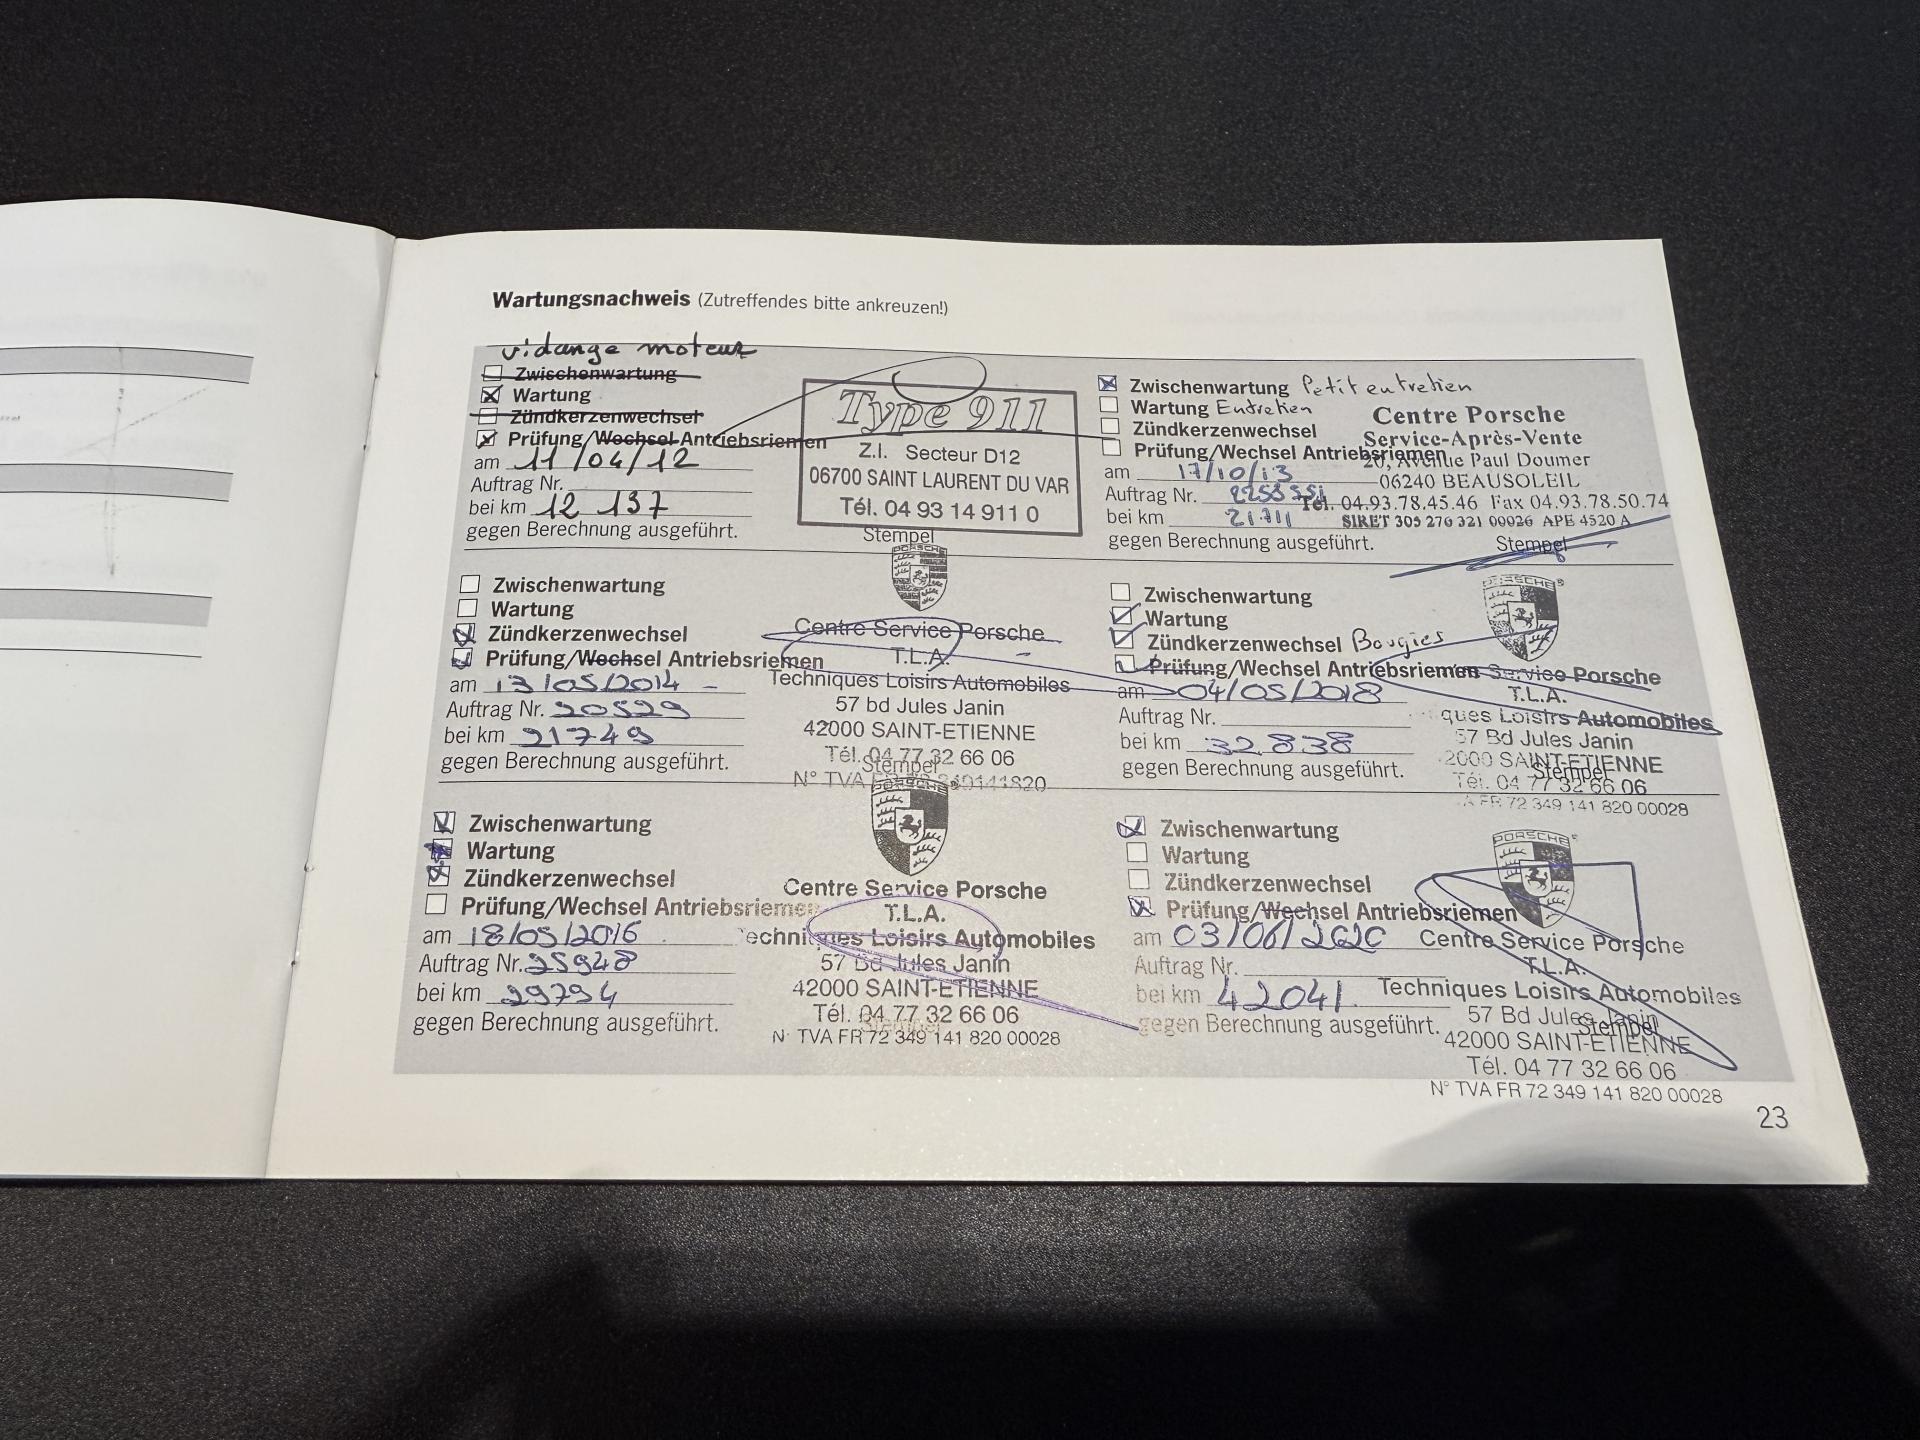 Wartungsnachweis (Zutreffendes bitte ankreuzen!)
vidange moteur
Zwischenwartung
Wartung
Zündkerzenwechsel
Prüfung/Wechsel Antriebsriemen
am 11/04/12
Auftrag Nr.
bei km 12 137
gegen Berechnung ausgeführt.
Type 911
Z.I. Secteur D12
06700 SAINT LAURENT DU VAR
Tél. 04 93 14 911 0
Stempel
Zwischenwartung Petit entretien
Wartung Entretien
Zündkerzenwechsel
Prüfung/Wechsel Antriebsriemen
am 17/10/13
Auftrag Nr.
bei km 21711
gegen Berechnung ausgeführt.
Centre Porsche
Service-Après-Vente
20, Avenue Paul Doumer
06240 BEAUSOLEIL
Tél. 04.93.78.45.46 Fax 04.93.78.50.74
SIRET 309 276 321 00026 APE 4520 A
Stempel
Zwischenwartung
Wartung
Zündkerzenwechsel
Prüfung/Wechsel Antriebsriemen
am 13/05/2014
Auftrag Nr. 20529
bei km 21749
gegen Berechnung ausgeführt.
PORSCHE
Centre Service Porsche
T.L.A.
Techniques Loisirs Automobiles
57 bd Jules Janin
42000 SAINT-ETIENNE
Tél. 04 77 32 66 06
Stempel
N° TVA FR 72 349141820
Zwischenwartung
Wartung
Zündkerzenwechsel Bougies
Prüfung/Wechsel Antriebsriemen
am 04/05/2018
Auftrag Nr.
bei km 32.838
gegen Berechnung ausgeführt.
PORSCHE®
Service Porsche
T.L.A.
ques Loisirs Automobiles
57 Bd Jules Janin
2000 SAINT-ETIENNE
Stempel
Tél. 04 77 32 66 06
A FR 72 349 141 820 00028
Zwischenwartung
Wartung
Zündkerzenwechsel
Prüfung/Wechsel Antriebsriemen
am 18/05/2016
Auftrag Nr. 25948
bei km 29794
gegen Berechnung ausgeführt.
PORSCHE®
Centre Service Porsche
T.L.A.
echniques Loisirs Automobiles
57 Bd Jules Janin
42000 SAINT-ETIENNE
Tél. 04 77 32 66 06
Stempel
N° TVA FR 72 349 141 820 00028
Zwischenwartung
Wartung
Zündkerzenwechsel
Prüfung/Wechsel Antriebsriemen
am 03/06/2020
Auftrag Nr.
bei km 42041
gegen Berechnung ausgeführt.
PORSCHE®
Centre Service Porsche
T.L.A.
Techniques Loisirs Automobiles
57 Bd Jules Janin
Stempel
42000 SAINT-ETIENNE
Tél. 04 77 32 66 06
N° TVA FR 72 349 141 820 00028
23